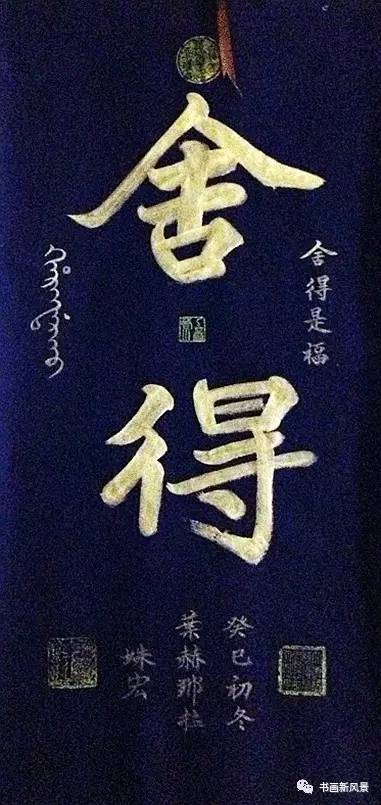 舍得
舍得是福
癸巳初冬
葉赫那拉
书画新风景